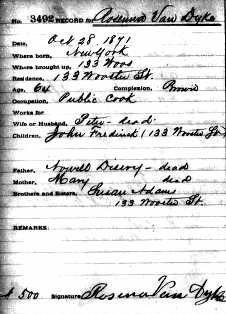 No. 3492 RECORD for Rosenna Van Dyke
Date, Oct 28, 1871
Where born, New York
Where brought up, 133 Woos
Residence, 133 Wooster St.
Age, 64 Complexion, Brown
Occupation, Public Cook
Works for
Wife or Husband, Peter - dead.
Children, John Fredinck (133 Wooster St.
Father, Nowell Disery - dead
Mother, Mary dead
Brothers and Sisters, Susan Adams
133 Wooster St.
REMARKS:
$ 500 Signature, Rosena Van Dyke